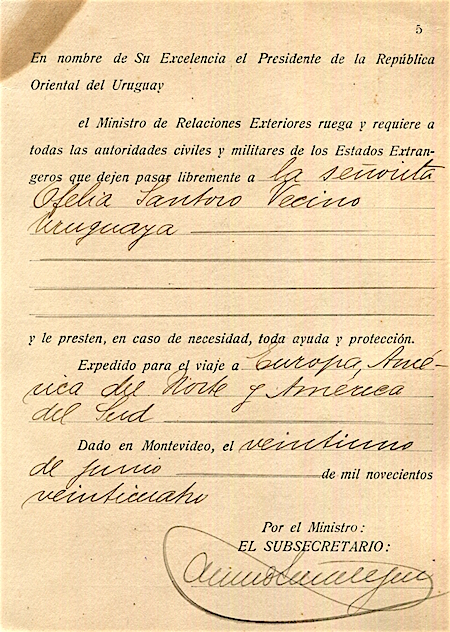 5
En nombre de Su Excelencia el Presidente de la República
Oriental del Uruguay
el Ministro de Relaciones Exteriores ruega y requiere a
todas las autoridades civiles y militares de los Estados Extran-
geros que dejen pasar libremente a la señorita
Ofelia Santoro Vecino
uruguaya
y le presten, en caso de necesidad, toda ayuda y protección.
Expedido para el viaje a Europa, Amé-
rica del Norte y América
del Sud
Dado en Montevideo, el veintiuno
de junio de mil novecientos
veinticuatro
Por el Ministro:
EL SUBSECRETARIO: